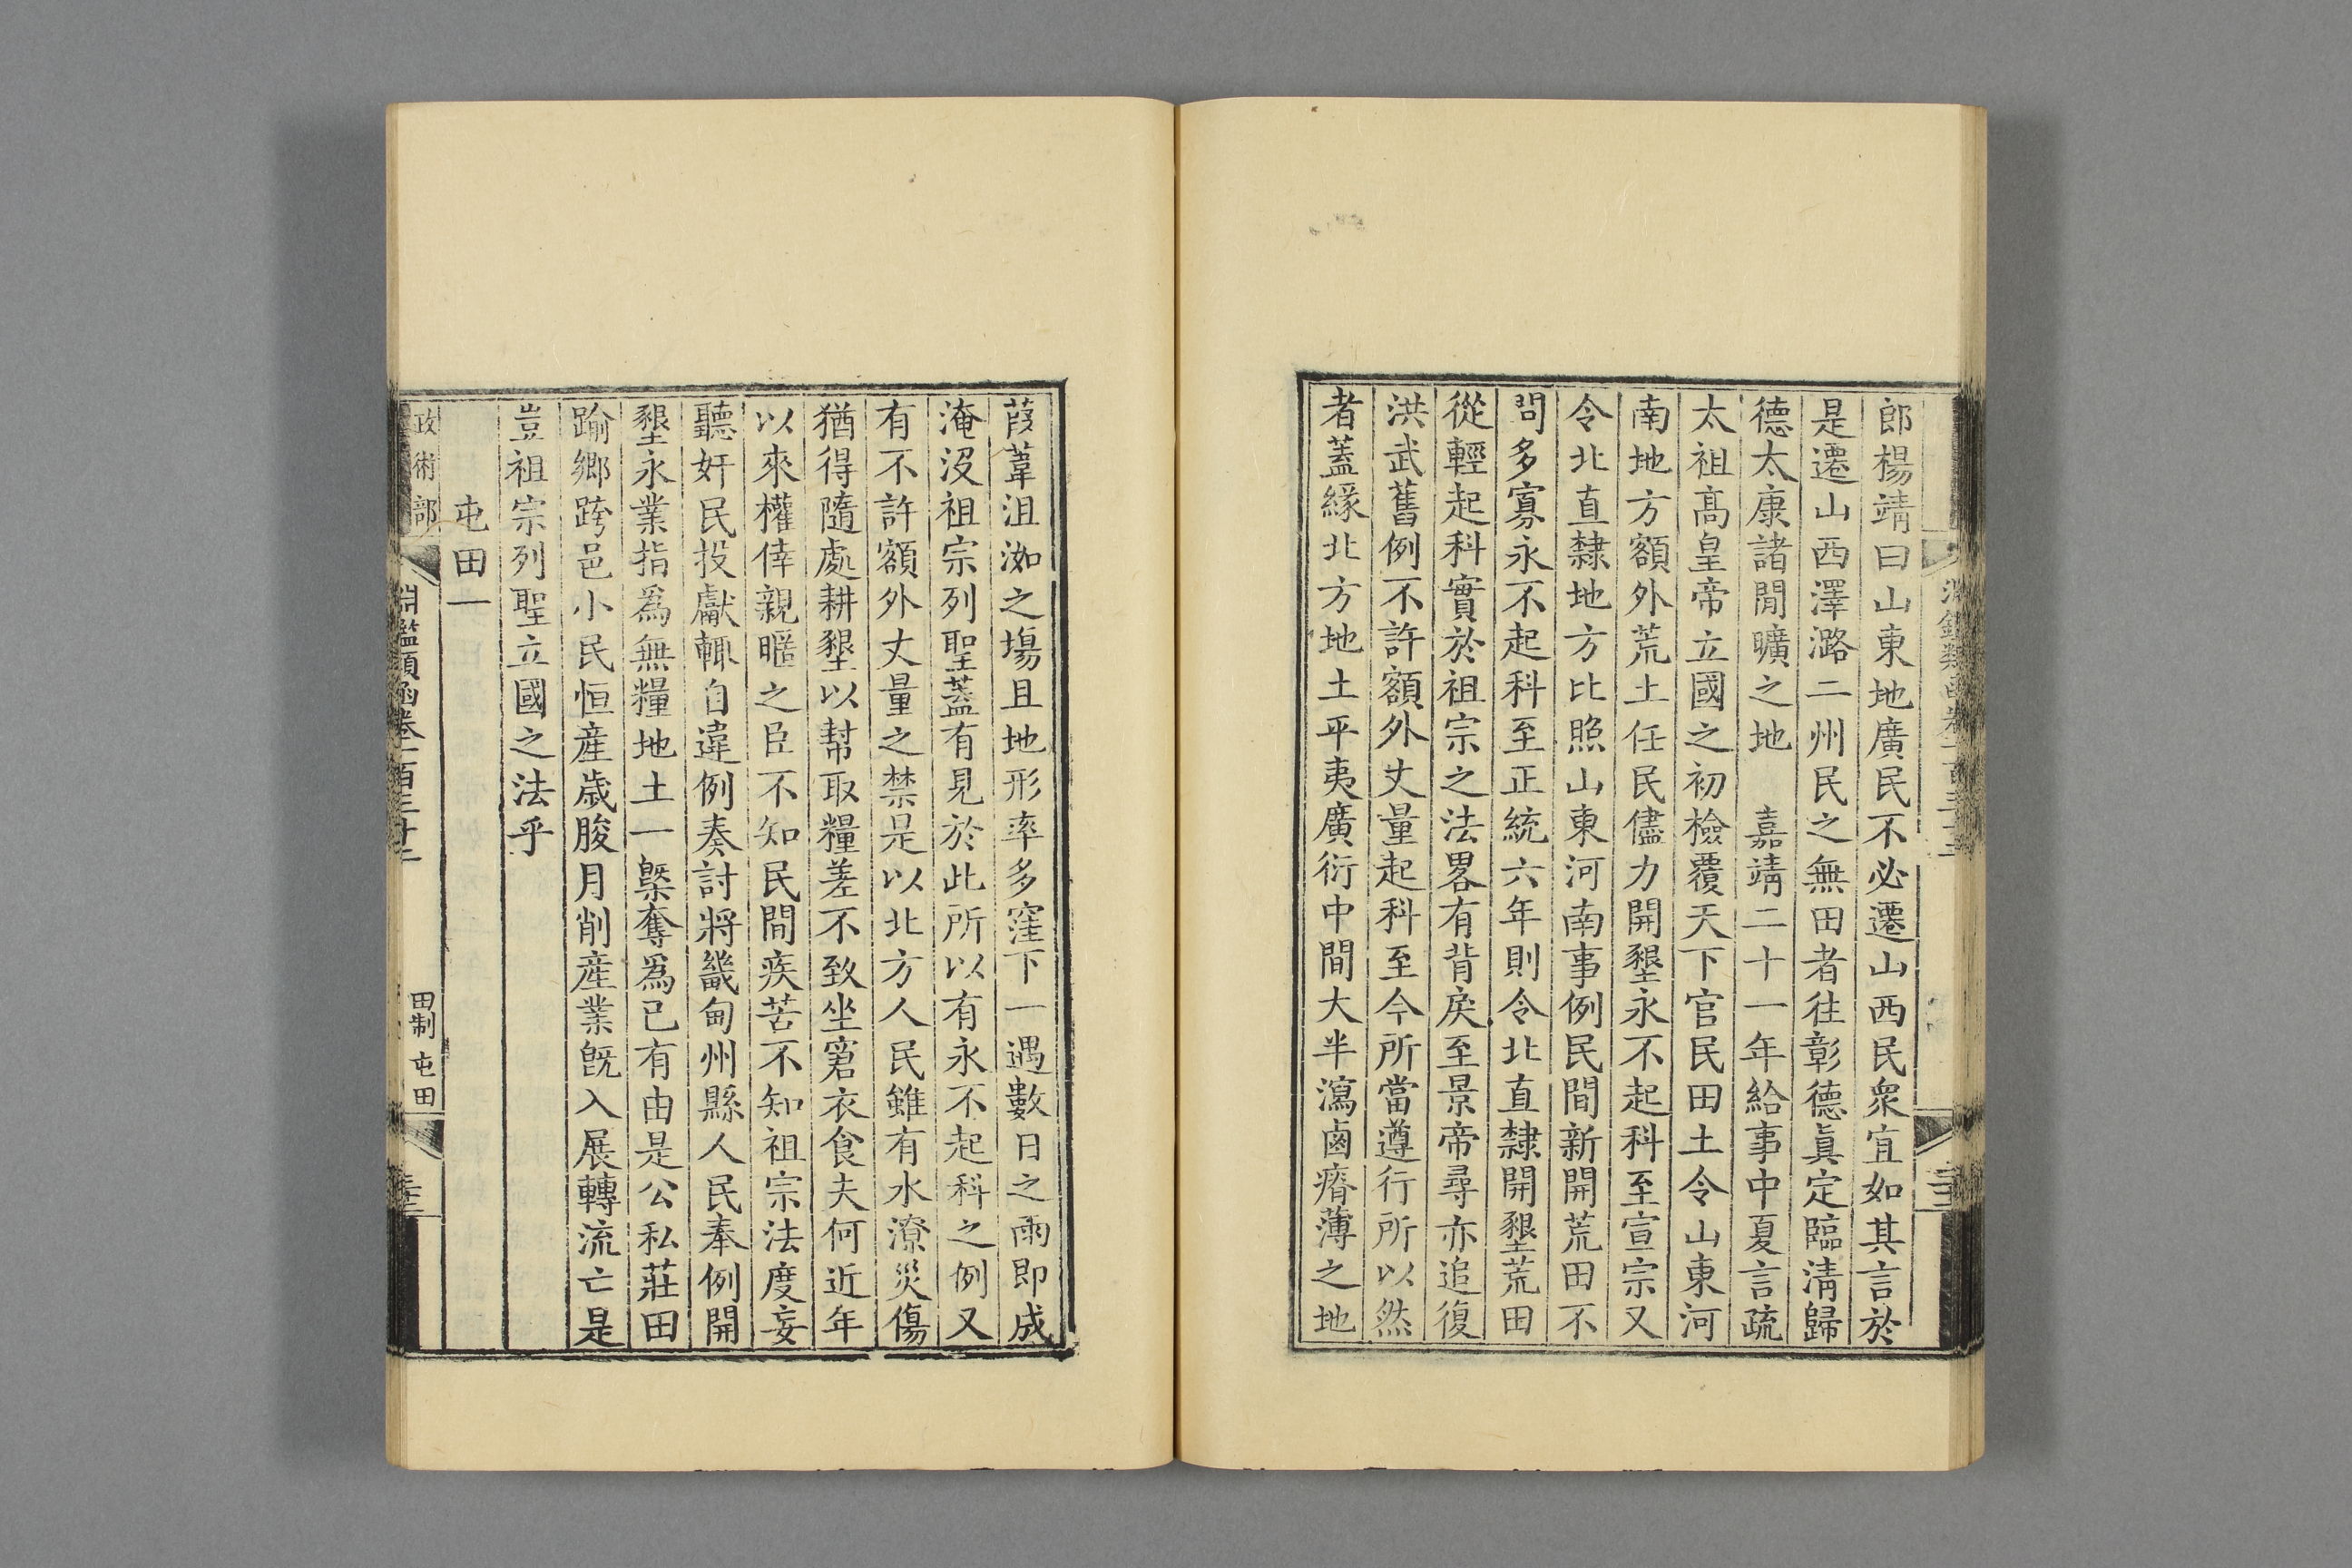 郎楊靖曰山東地廣民不必遷山西民衆宜如其言於
是遷山西澤潞二州民之無田者往彰德眞定臨淸歸
德太康諸閒曠之地　嘉靖二十一年給事中夏言疏
太祖高皇帝立國之初檢覆天下官民田土令山東河
南地方額外荒土任民儘力開墾永不起科至宣宗又
令北直隸地方比照山東河南事例民間新開荒田不
問多寡永不起科至正統六年則令北直隸開墾荒田
從輕起科實於祖宗之法畧有背戾至景帝尋亦追復
洪武舊例不許額外丈量起科至今所當遵行所以然
者蓋緣北方地土平夷廣衍中間大半瀉鹵瘠薄之地
葭葦沮洳之場且地形率多窪下一遇數日之雨卽成
淹没祖宗列聖蓋有見於此所以有永不起科之例又
有不許額外丈量之禁是以北方人民雖有水潦災傷
猶得隨處耕墾以幫取糧差不致坐窘衣食夫何近年
以來權倖親暱之臣不知民間疾苦不知祖宗法度妄
聽奸民投獻輒自違例奏討將畿甸州縣人民奉例開
墾永業指爲無糧地土一槩奪爲已有由是公私莊田
踰鄉跨邑小民恒産歲朘月削産業旣入展轉流亡是
豈祖宗列聖立國之法乎
屯田一
政術部
淵鑑類函卷一百三十二
田制 屯田